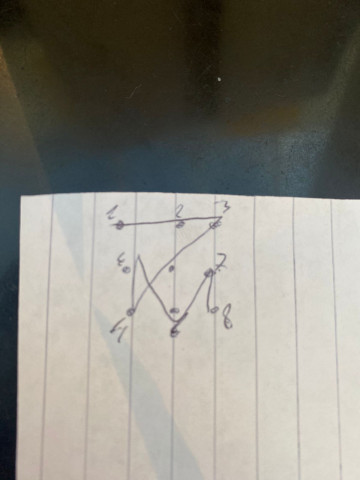 1 2 3
7
4 6 8